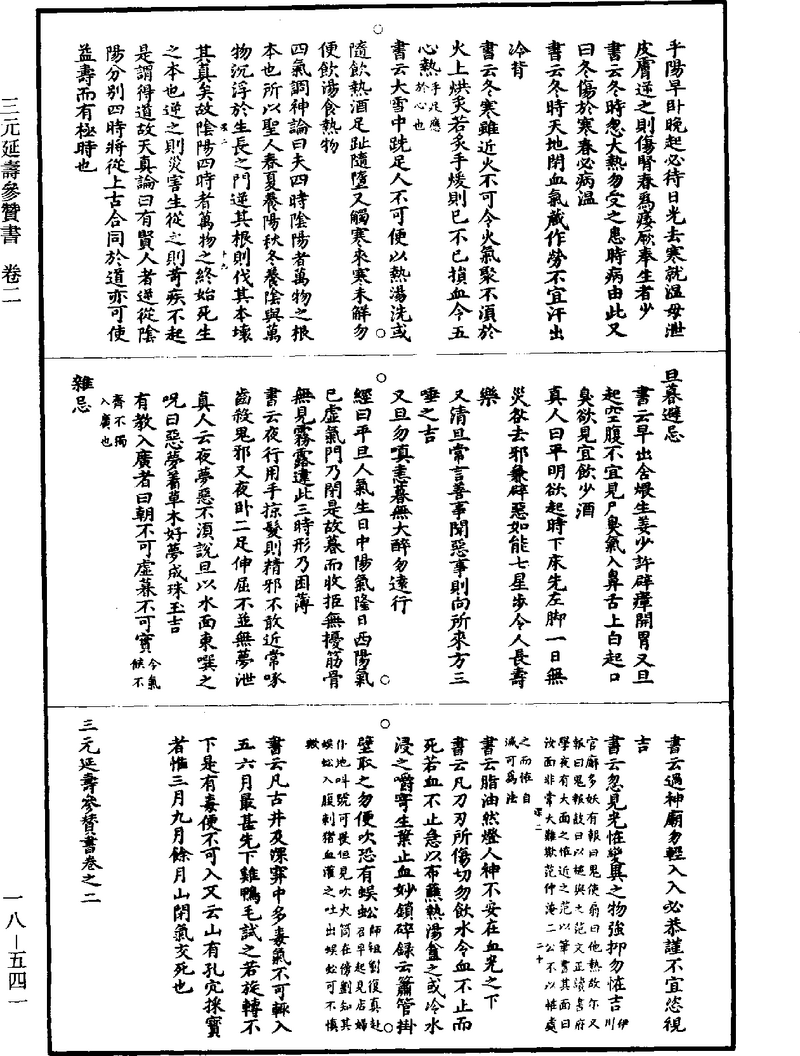 三元延壽參贊書　卷二
平陽早卧晚起必待日光去寒就溫毋泄
皮膚逆之則傷腎春爲痿厥奉生者少
書云冬時忽大熱勿受之患時病由此又
曰冬傷於寒春必病溫
書云冬時天地閉血氣藏作勞不宜汗出
冷背
書云冬寒雖近火不可令火氣聚不須於
火上烘炙若炙手煖則已不已損血令五
心熱手足應於心也
書云大雪中跣足人不可便以熱湯洗或
隨飲熱酒足趾隨墮又觸寒來寒未解勿
便飲湯食熱物
四氣調神論曰夫四時陰陽者萬物之根
本也所以聖人春夏養陽秋冬養陰與萬
物沉浮於生長之門逆其根則伐其本壞
其真矣故陰陽四時者萬物之終始死生
之本也逆之則災害生從之則苛疾不起
是謂得道故天真論曰有賢人者逆從陰
陽分別四時將從上古合同於道亦可使
益壽而有極時也
旦暮避忌
書云早出舍煨生姜少許辟瘴開胃又旦
起空腹不宜見尸臭氣入鼻舌上白起口
臭欲見宜飲少酒
真人曰平明欲起時下床先左脚一日無
災咎去邪兼辟惡如能七星步令人長壽
樂
又清旦常言善事聞惡事則向所來方三
唾之吉
又旦勿嗔恚暮無大醉勿遠行
經曰平旦人氣生日中陽氣隆日西陽氣
已虛氣門乃閉是故暮而收拒無擾筋骨
無見霧露違此三時形乃困薄
書云夜行用手掠髮則精邪不敢近常啄
齒殺鬼邪又夜卧二足伸屈不並無夢泄
真人云夜夢惡不須說旦以水面東噀之
呪曰惡夢著草木好夢成珠玉吉
有教入廣者曰朝不可虛暮不可實今氣候不
齊不獨入廣也
雜忌
書云過神廟勿輕入入必恭謹不宜恣視
吉
書云忽見光怪變異之物強抑勿怪吉伊川
官廨多妖有報曰鬼使扇曰他熱故尔又
報曰鬼報鼓曰以槌與之范文正讀書府
學夜有大面之怪近之范以筆書其面曰
汝面非常大難欺范仲淹二公不以怪處
之而怪自滅可爲法
書云脂油然燈人神不安在血光之下
書云凡刀刃所傷切勿飲水令血不止而
死若血不止急以布蘸熱湯盦之或冷水
浸之嚼寄生葉止血妙鎖碎録云簫管掛
壁取之勿便吹恐有蜈蚣師祖劉復真赴召早起見店婦
仆地叫號可畏但見吹火筒在傍劉知其
蜈蚣入腹刺猪血灌之吐出蜈蚣可不慎
歟
書云凡古井及深穽中多毒氣不可輒入
五六月最甚先下雞鴨毛試之若旋轉不
下是有毒便不可入又云山有孔穴採寶
者惟三月九月餘月山閉氣交死也
三元延壽參贊書卷之二
一八－五四一